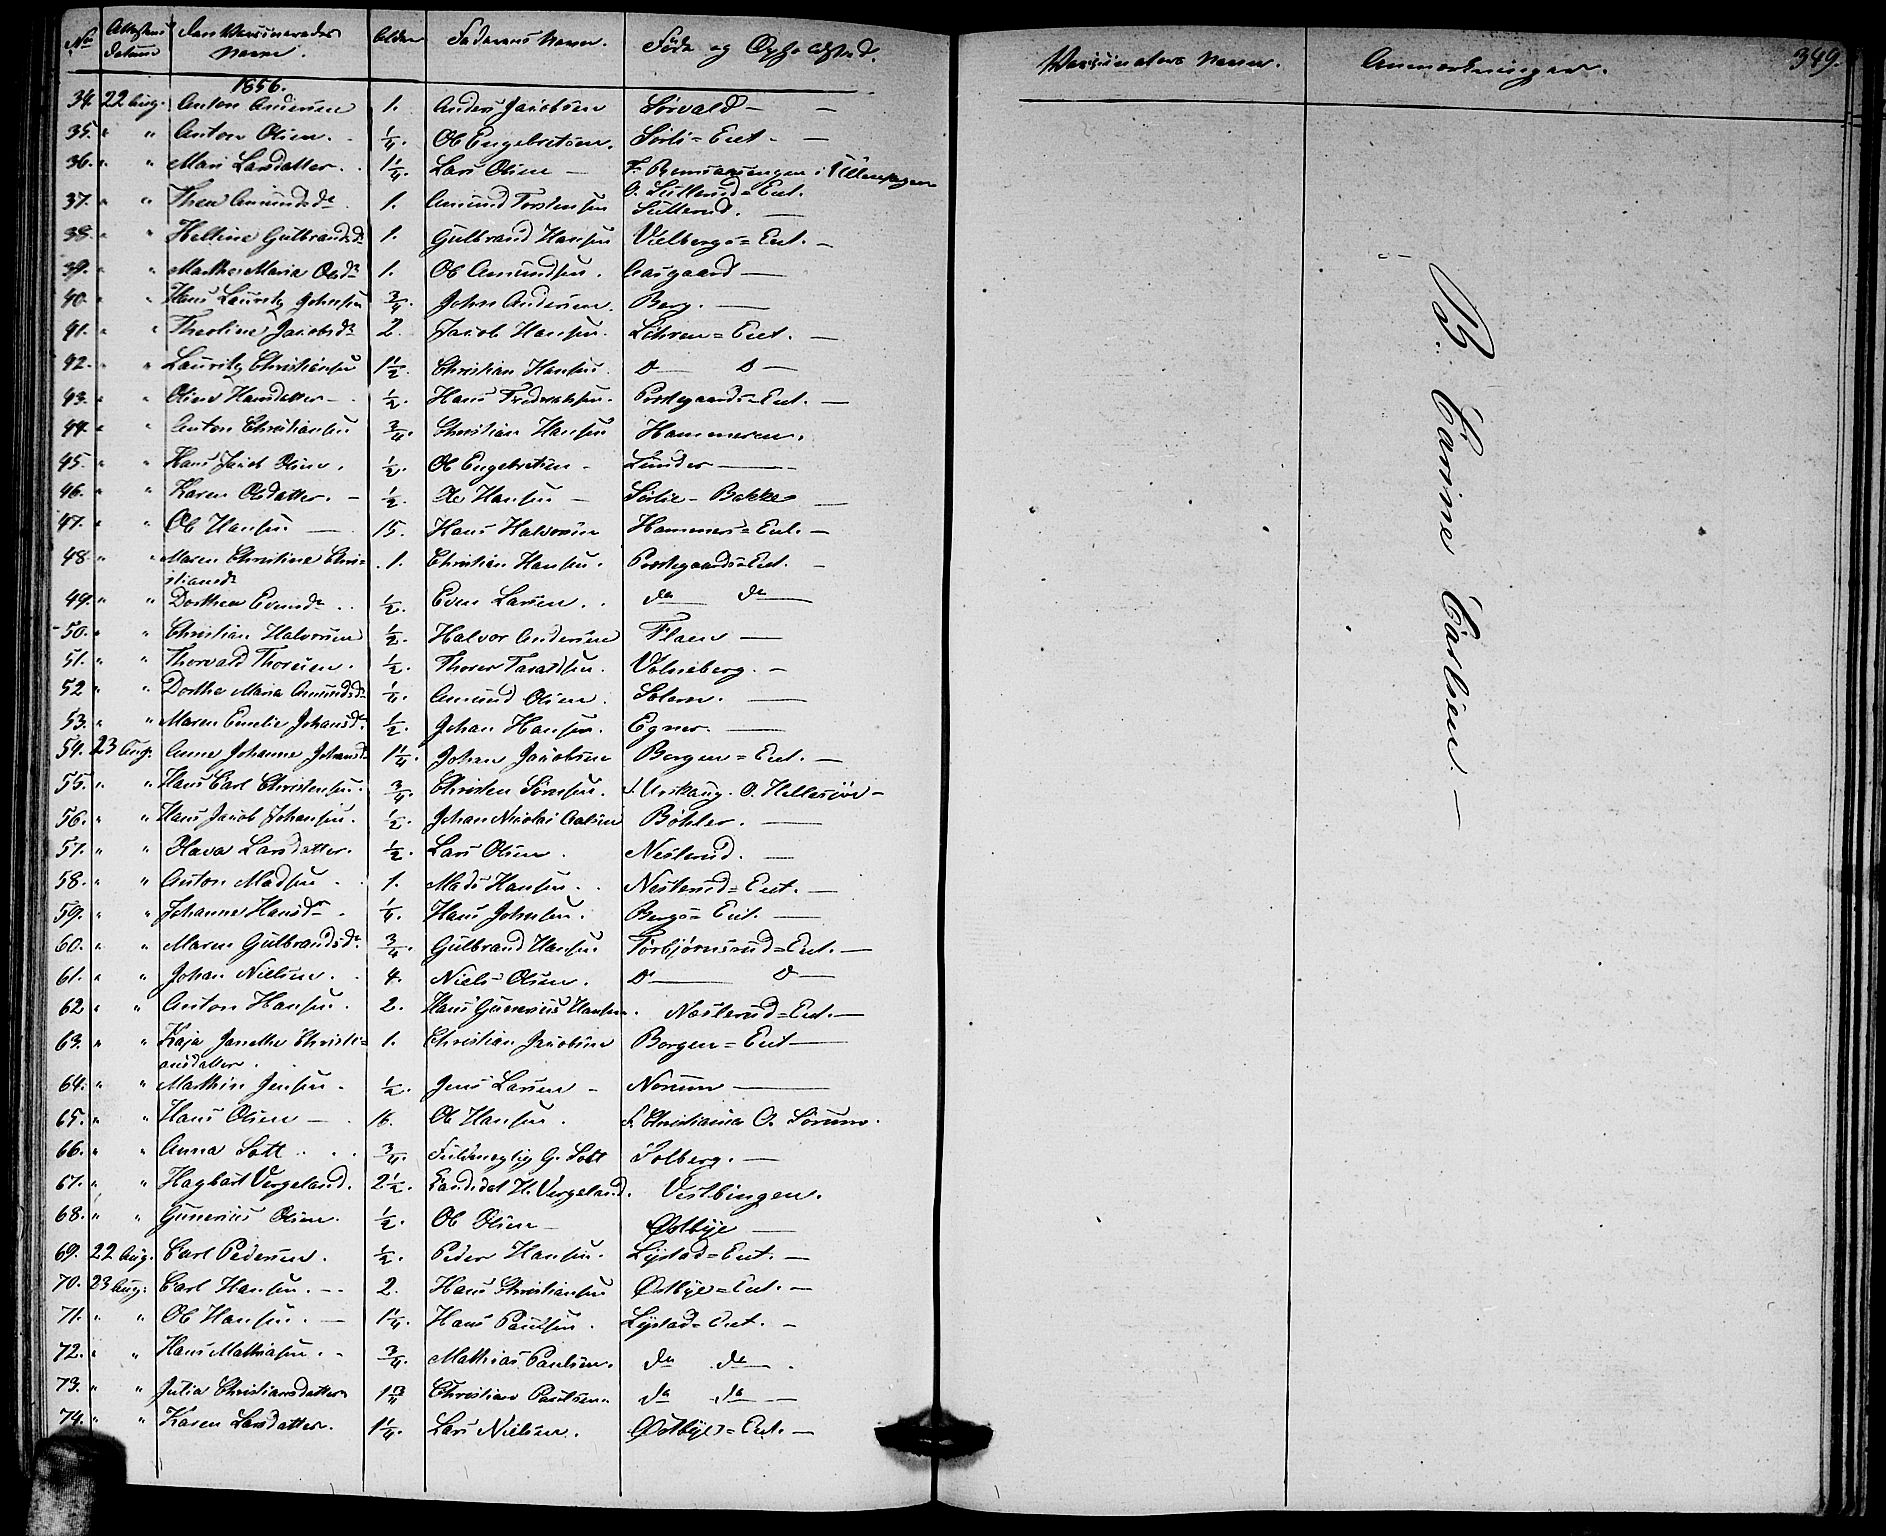 No Attestens Datum Den Vaccineredes Navn. Alder Faderens Navn. Føde og Opholdssted. Vaccinateurs Navn. Anmærkninger. 349.
1856.
34. 22 Aug. Anton Andersen 1. Anders Jacobsen Sörvald —
35. " " Anton Olsen. 1/4. Ole Engebretsen. Sorli=Eiet. —
36. " " Mari Larsdatter. 1 1/4. Lars Olsen — F. i Ullensager
O. Sutterud=Eiet.
37. " " Thea Amundsdr 1. Amund Torstensen Sutterud. —
38. " " Helline Gulbrandsdr 1. Gulbrand Hansen Vielbergs=Eiet. —
39. " " Marthe Maria Olsdr 1. Ole Amundsen. Aasgaard —
40. " " Hans Lauritz Johnsen 3/4. John Andersen. Berg. —
41. " " Theoline Jacobsdr 2. Jacob Hansen. Löhren=Eiet. —
42. " " Lauritz Christiansen 1 1/2. Christian Hansen. D— D—
43. " " Oline Hansdatter — 1/2. Hans Frederiksen. Prestegaards=Eiet. —
44. " " Anton Christiansen 3/4. Christian Hansen Hammeren.
45. " " Hans Jacob Olsen. 1/2. Ole Engebretsen — Linder —
46. " " Karen Olsdatter. — 1/2. Ole Hansen — Sørlie - Bakke —
47. " " Ole Hansen — 15. Hans Halvorsen Hammers=Eiet. —
48. " " Maren Christine Christiansdr 1. Christian Hansen. Prestegaards=Eiet. —
49. " " Dorthea Evensdr 1/2. Even Larsen. do do
50. " " Christian Halvorsen 1/2. Halvor Andersen Flaen —
51. " " Thorvald Thoresen. 1/2. Thorer Taraldsen. Valneberg. —
52 " " Dorthe Maria Amundsdr 1/4. Amund Olsen. Solem. —
53. " " Maren Emelie Johansdr 1/2. Johan Hansen. Egner. —
54. 23 Aug. Anne Johanne Johansdr 1 1/4. Johan Jacobsen Borgen=Eiet. —
55. " " Hans Carl Christensen. 3/4. Christen Sörensen. f. Urskaug. O. Hellesjöe —
56. " " Hans Jacob Johansen. 1/2. Johan Nicolai Böhler. —
57. " " Olava Larsdatter. 1/2. Lars Olsen. Nesterud. —
58. " " Anton Madsen. 1. Mads Hansen. Nesterud=Eiet. —
59. " " Johanne Hansdr 1/4. Hans Johnsen. Bergs=Eiet. —
60. " " Maren Gulbrandsdr. 3/4. Gulbrand Hansen Torbjörnsrud=Eiet. —
61. " " Johan Nielsen. 4. Niels Olsen. D— D—
62 " " Anton Hansen. 2. Hans Gunerius Hansen. Nesterud=Eiet. —
63. " " Kaja Janethe Christiansdatter. 1. Christian Jacobsen Borgen=Eiet —
64. " " Mathin Jensen. 1/2. Jens Larsen — Norum —
65. " " Hans Olsen — 16. Ole Hansen. f. Christiania O. Sörum.
66. " " Anna Sott 3/4. Fuldmegtig G. Sott Solberg. —
67. " " Hagbart Vergeland. 2 1/2. Candidat H. Vergeland. Vestbingen.
68. " " Gunerius Olsen. 1/2. Ole Olsen — Østbye —
69. 22 Aug. Carl Pedersen. 1/2. Peder Hansen. Lystad=Eiet. —
70. 23 Aug. Carl Hansen. — 2. Hans Christiansen Østbye=Eiet. —
71. " " Ole Hansen. — 1 1/4. Hans Paulsen. Lystad=Eiet. —
72. " " Hans Mathiasen. — 3/4. Mathias Paulsen. do do
73. " " Julia Christiansdatter 1 3/4 Christian Paulsen. do do —
74. " " Karen Larsdatter. 1 1/4. Lars Nielsen. Østbye=Eiet. —
Carine Carlsen. —